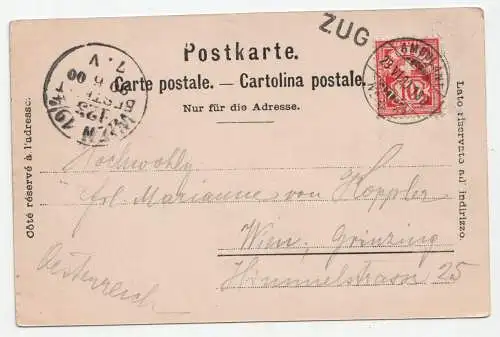 ZUG
Postkarte.
Carte postale. — Cartolina postale.
Nur für die Adresse.
Côté réservé à l'adresse.
Lato riservato all'indirizzo.
WIEN 19/1
125
BESTELLT
00
10
Hochwohlg
Frl. Marianne von Hoppler
Wien, Grinzing
Himmelstrasse 25
Oesterreich